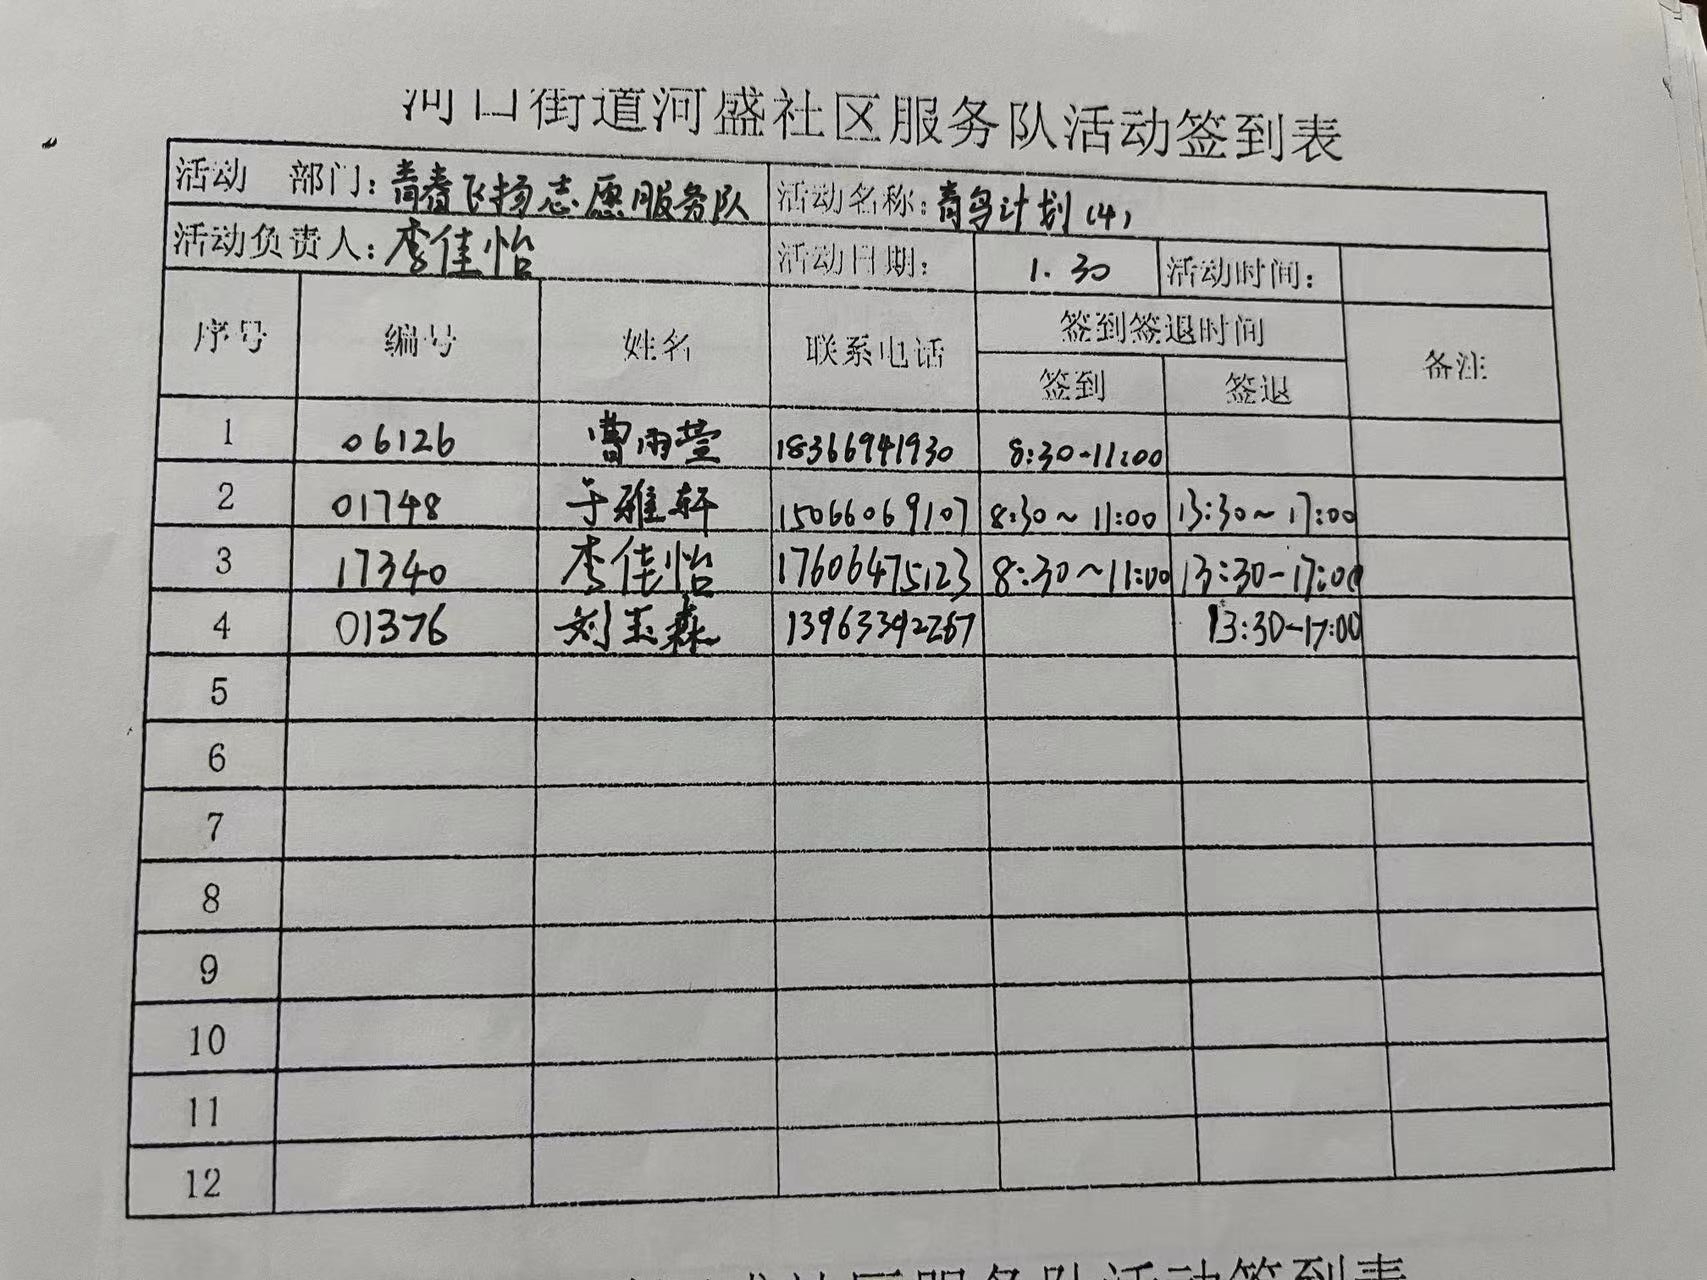 河口街道河盛社区服务队活动签到表
活动 部门：青春飞扬志愿服务队 活动名称：青鸟计划(4)
活动负责人：李佳怡 活动日期： 1.30 活动时间：
序号 编号 姓名 联系电话 签到签退时间 备注
签到 签退
1 06126 曹雨萱 18366941930 8:30-11:00
2 01748 于雅轩 15066069107 8:30~11:00 13:30~17:00
3 17340 李佳怡 17606475123 8:30~11:00 13:30-17:00
4 01376 刘玉森 13963392267 13:30-17:00
5
6
7
8
9
10
11
12
社区服务队活动签到表